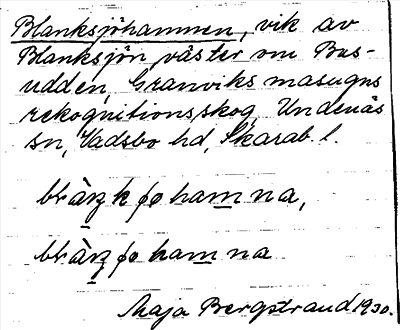 Blanksjöhammen, vik av
Blanksjön väster om Bas-
udden, Granviks masugns
rekognitionsskog, Undenäs
sn, Vadsbo hd, Skarab. l.
Maja Bergstrand 1930.